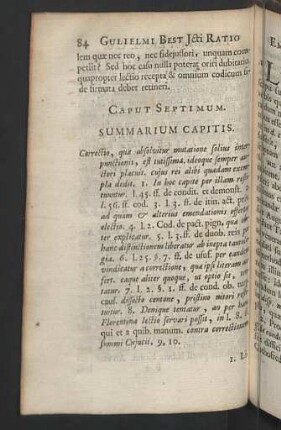 84 GULIELMI BEST Jcti RATIO
lem quæ nec reo, nec fidejussori, unquam com-
petiit? Sed hoc casu nulla poterat oriri dubitatio
quapropter lectio recepta & omnium codicum fi-
de firmata debet retineri.
CAPUT SEPTIMUM.
SUMMARIUM CAPITIS.
Correctio, quæ absolvitur mutatione solius inter-
punctionis, est tutissima. ideoque semper au-
ctori placuit. cujus rei alibi quædam exem-
pla dedit. 1. In hoc capite per illam resti-
tuuntur. l. 45. ff. de condit. et demonst. 2.
l. 56. ff. eod. 3. l. 3. ff. de itin. act. pr.
ad quem & alterius emendationis offertur
electio. 4. l. 2. Cod. de pact. pign. quæ ali-
ter explicatur. 5. l. 3. ff. de duob. reis per
hanc distinctionem liberatur ab inepta tautolo-
gia. 6. l. 25. §. 7. ff. de usuf. per eandem
vindicatur a correctione, quæ ipsi literam au-
fert. eaque aliter quoque, ut optio sit, ten-
tatur. 7. l. 2. §. 1. ff. de cond. ob. turp.
caus. dissecto centone, pristino nitori resti-
tuitur. 8. Denique tentatur, an per hanc
Florentina lectio servari possit, in l. 8. ff.
qui et a quib. manum. contra correctionem
summi Cujacii. 9. 10.